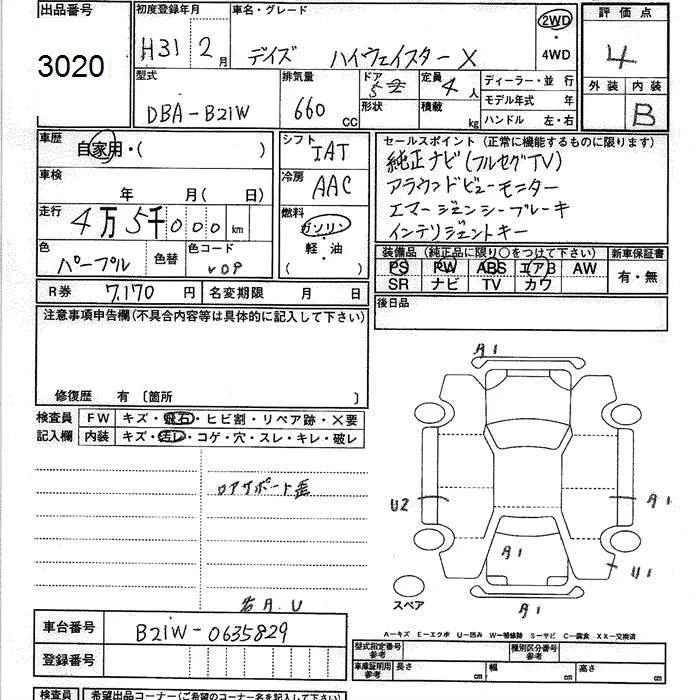 出品番号
3020
初度登録年月
H31 2月
車名・グレード
デイズ ハイウェイスターX
2WD
・
4WD
評価点
4
外装 内装
B
型式
DBA-B21W
排気量
660 cc
ドア
5
形状
定員
4人
積載
kg
ディーラー・並 行
モデル年式 年
ハンドル 左・右
車歴
自家用・( )
車検
年 月( 日)
走行
4万5千000km
色
パープル
色替
色コード
シフト
IAT
冷房
AAC
燃料
ガソリン・
軽・油
( )
セールスポイント (正常に機能するものに限ります)
純正ナビ(フルセグTV)
アラウンドビューモニター
エマージェンシーブレーキ
インテリジェントキー
装備品 (純正品に限り○をつけて下さい)
PS PW ABS エアB AW
SR ナビ TV カワ
新車保証書
有・無
R券
7,170円
名変期限 月 日
後日品
注意事項申告欄(不具合内容等は具体的に記入して下さい)
修復歴 有 〔箇所 〕
検査員
記入欄
FW キズ・飛石・ヒビ割・リペア跡・X要
内装 キズ・汚レ・コゲ・穴・スレ・キレ・破レ
ロアサポート歪
A1
U2
A1
A1
U1
A1
スペア
車台番号
B21W-0635829
登録番号
A-キズ E-エクボ U-凹み W-補修跡 S-サビ C-腐食 XX-交換済
型式指定番号
参考
種別区分番号
参考
車庫証明用
参考
長さ cm
幅 cm
高さ cm
検査員
希望出品コーナー(ご希望のコーナー名を記入して下さい)